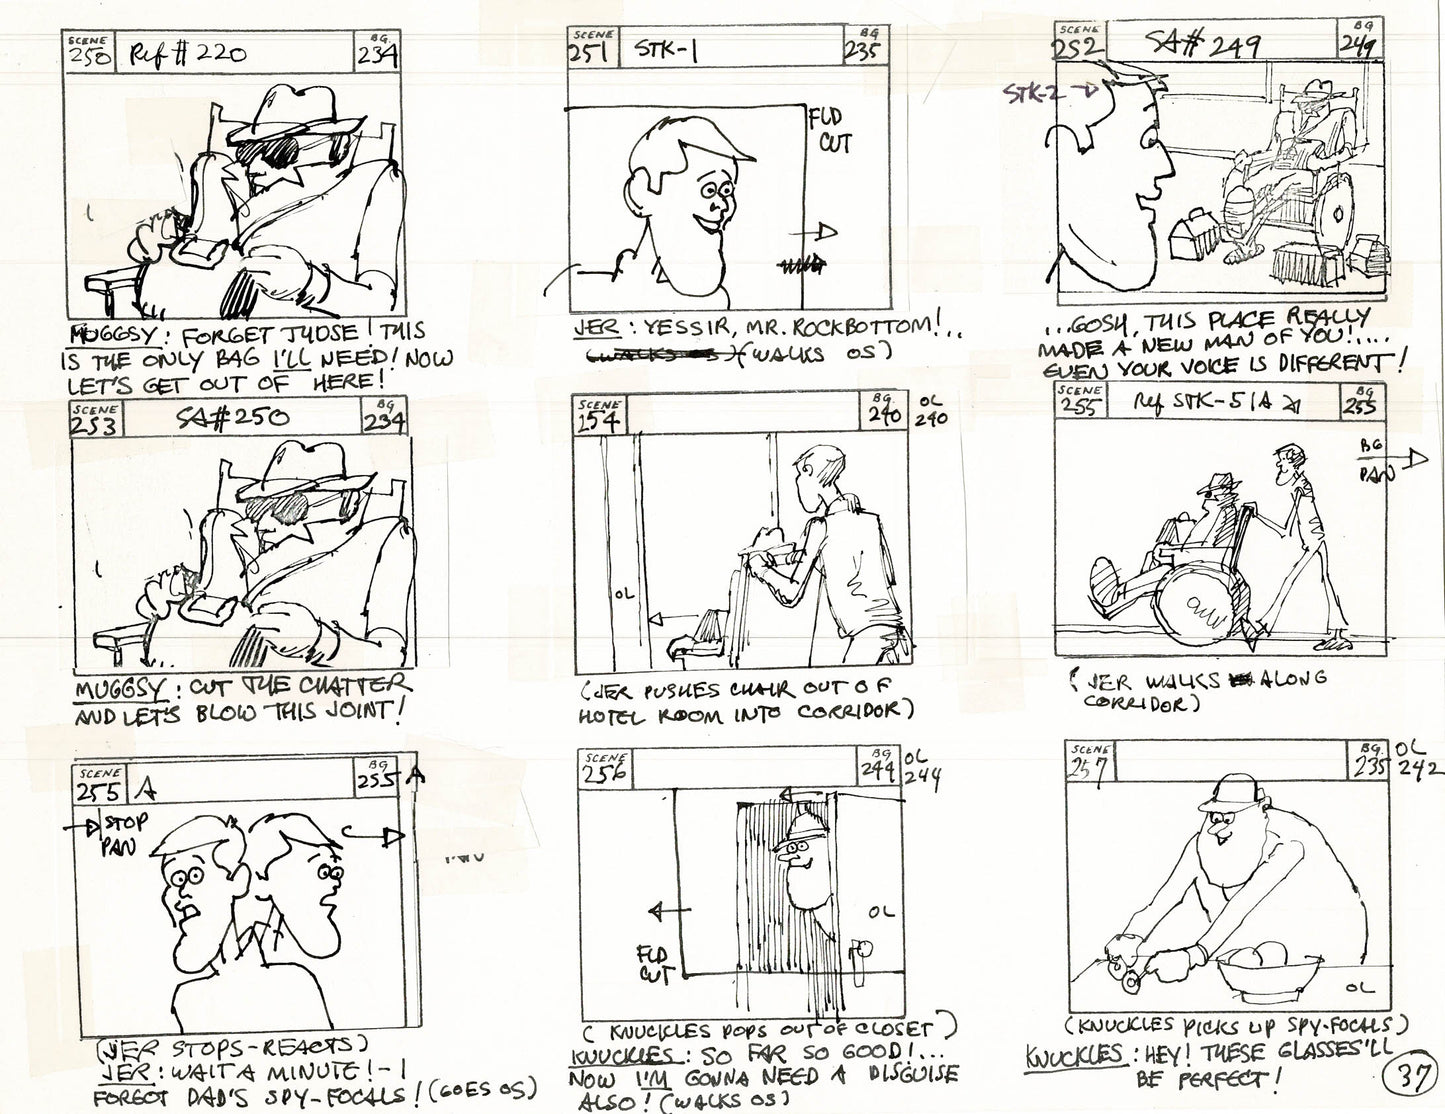 SCENE 250 Ref # 220 BG. 234
MUGGSY: FORGET THOSE! THIS
IS THE ONLY BAG I'LL NEED! NOW
LET'S GET OUT OF HERE!
SCENE 251 STK-1 BG 235
FLD
CUT
JER: YESSIR, MR. ROCKBOTTOM!..
(WALKS OS)
SCENE 252 SA# 249 BG 249
STK-2
...GOSH, THIS PLACE REALLY
MADE A NEW MAN OF YOU!....
EVEN YOUR VOICE IS DIFFERENT!
SCENE 253 SA# 250 BG 234
MUGGSY: CUT THE CHATTER
AND LET'S BLOW THIS JOINT!
SCENE 154 BG. 240 OL 240
OL
(JER PUSHES CHAIR OUT OF
HOTEL ROOM INTO CORRIDOR)
SCENE 255 Ref STK-51A BG. 255
BG
PAN
(JER WALKS ALONG
CORRIDOR)
SCENE 255 A BG 255 A
STOP
PAN
(JER STOPS-REACTS)
JER: WAIT A MINUTE!-I
FORGOT DAD'S SPY-FOCALS! (GOES OS)
SCENE 256 BG 244 OL 244
OL
FLD
CUT
(KNUCKLES POPS OUT OF CLOSET)
KNUCKLES: SO FAR SO GOOD!...
NOW I'M GONNA NEED A DISGUISE
ALSO! (WALKS OS)
SCENE 257 BG. 235 OL 242
OL
(KNUCKLES PICKS UP SPY-FOCALS)
KNUCKLES: HEY! THESE GLASSES'LL
BE PERFECT!
37